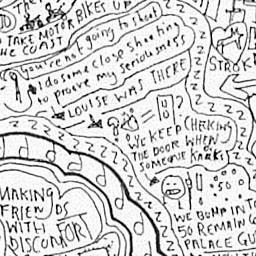 BIKES UP
TAKE MOTOR
THE COAST
you're not going to shoot
I do some close shooting
to prove my seriousness
LOUISE WAS THERE
STROK
= ?
WE KEEP CHECKING
THE DOOR WHEN
SOMEONE KNOCKS
z z z z z z
MAKING
FRIENDS
WITH
DISCOMFORT
50
WE BUMP INTO
50 REMAIN
PALACE GU